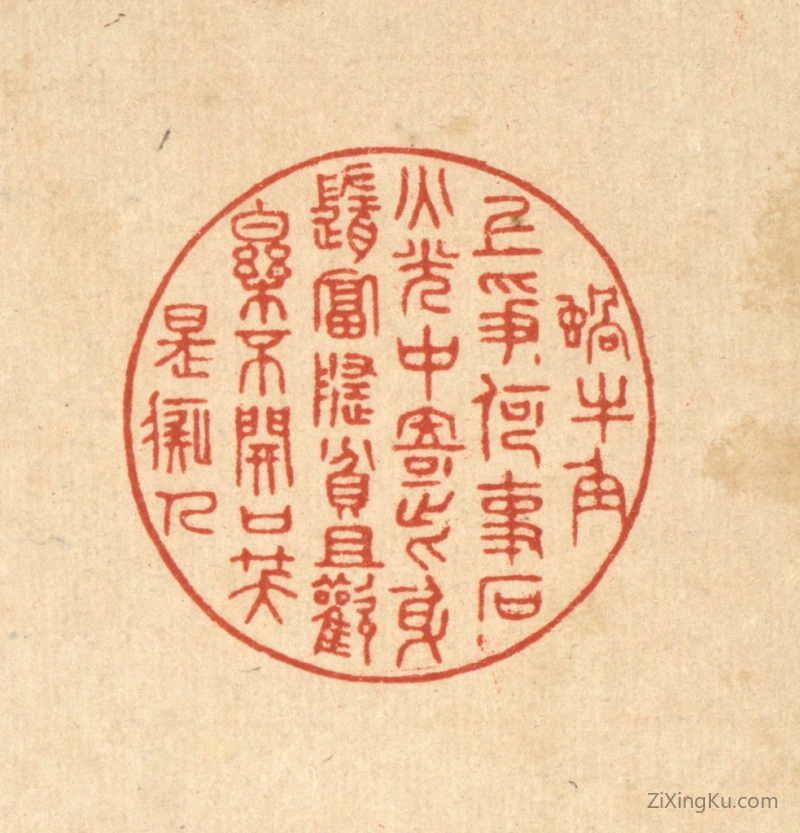 蝸牛角
上爭何事石
火光中寄此身
隨富隨貧且歡
樂不開口笑
是癡人
ZiXingKu.com